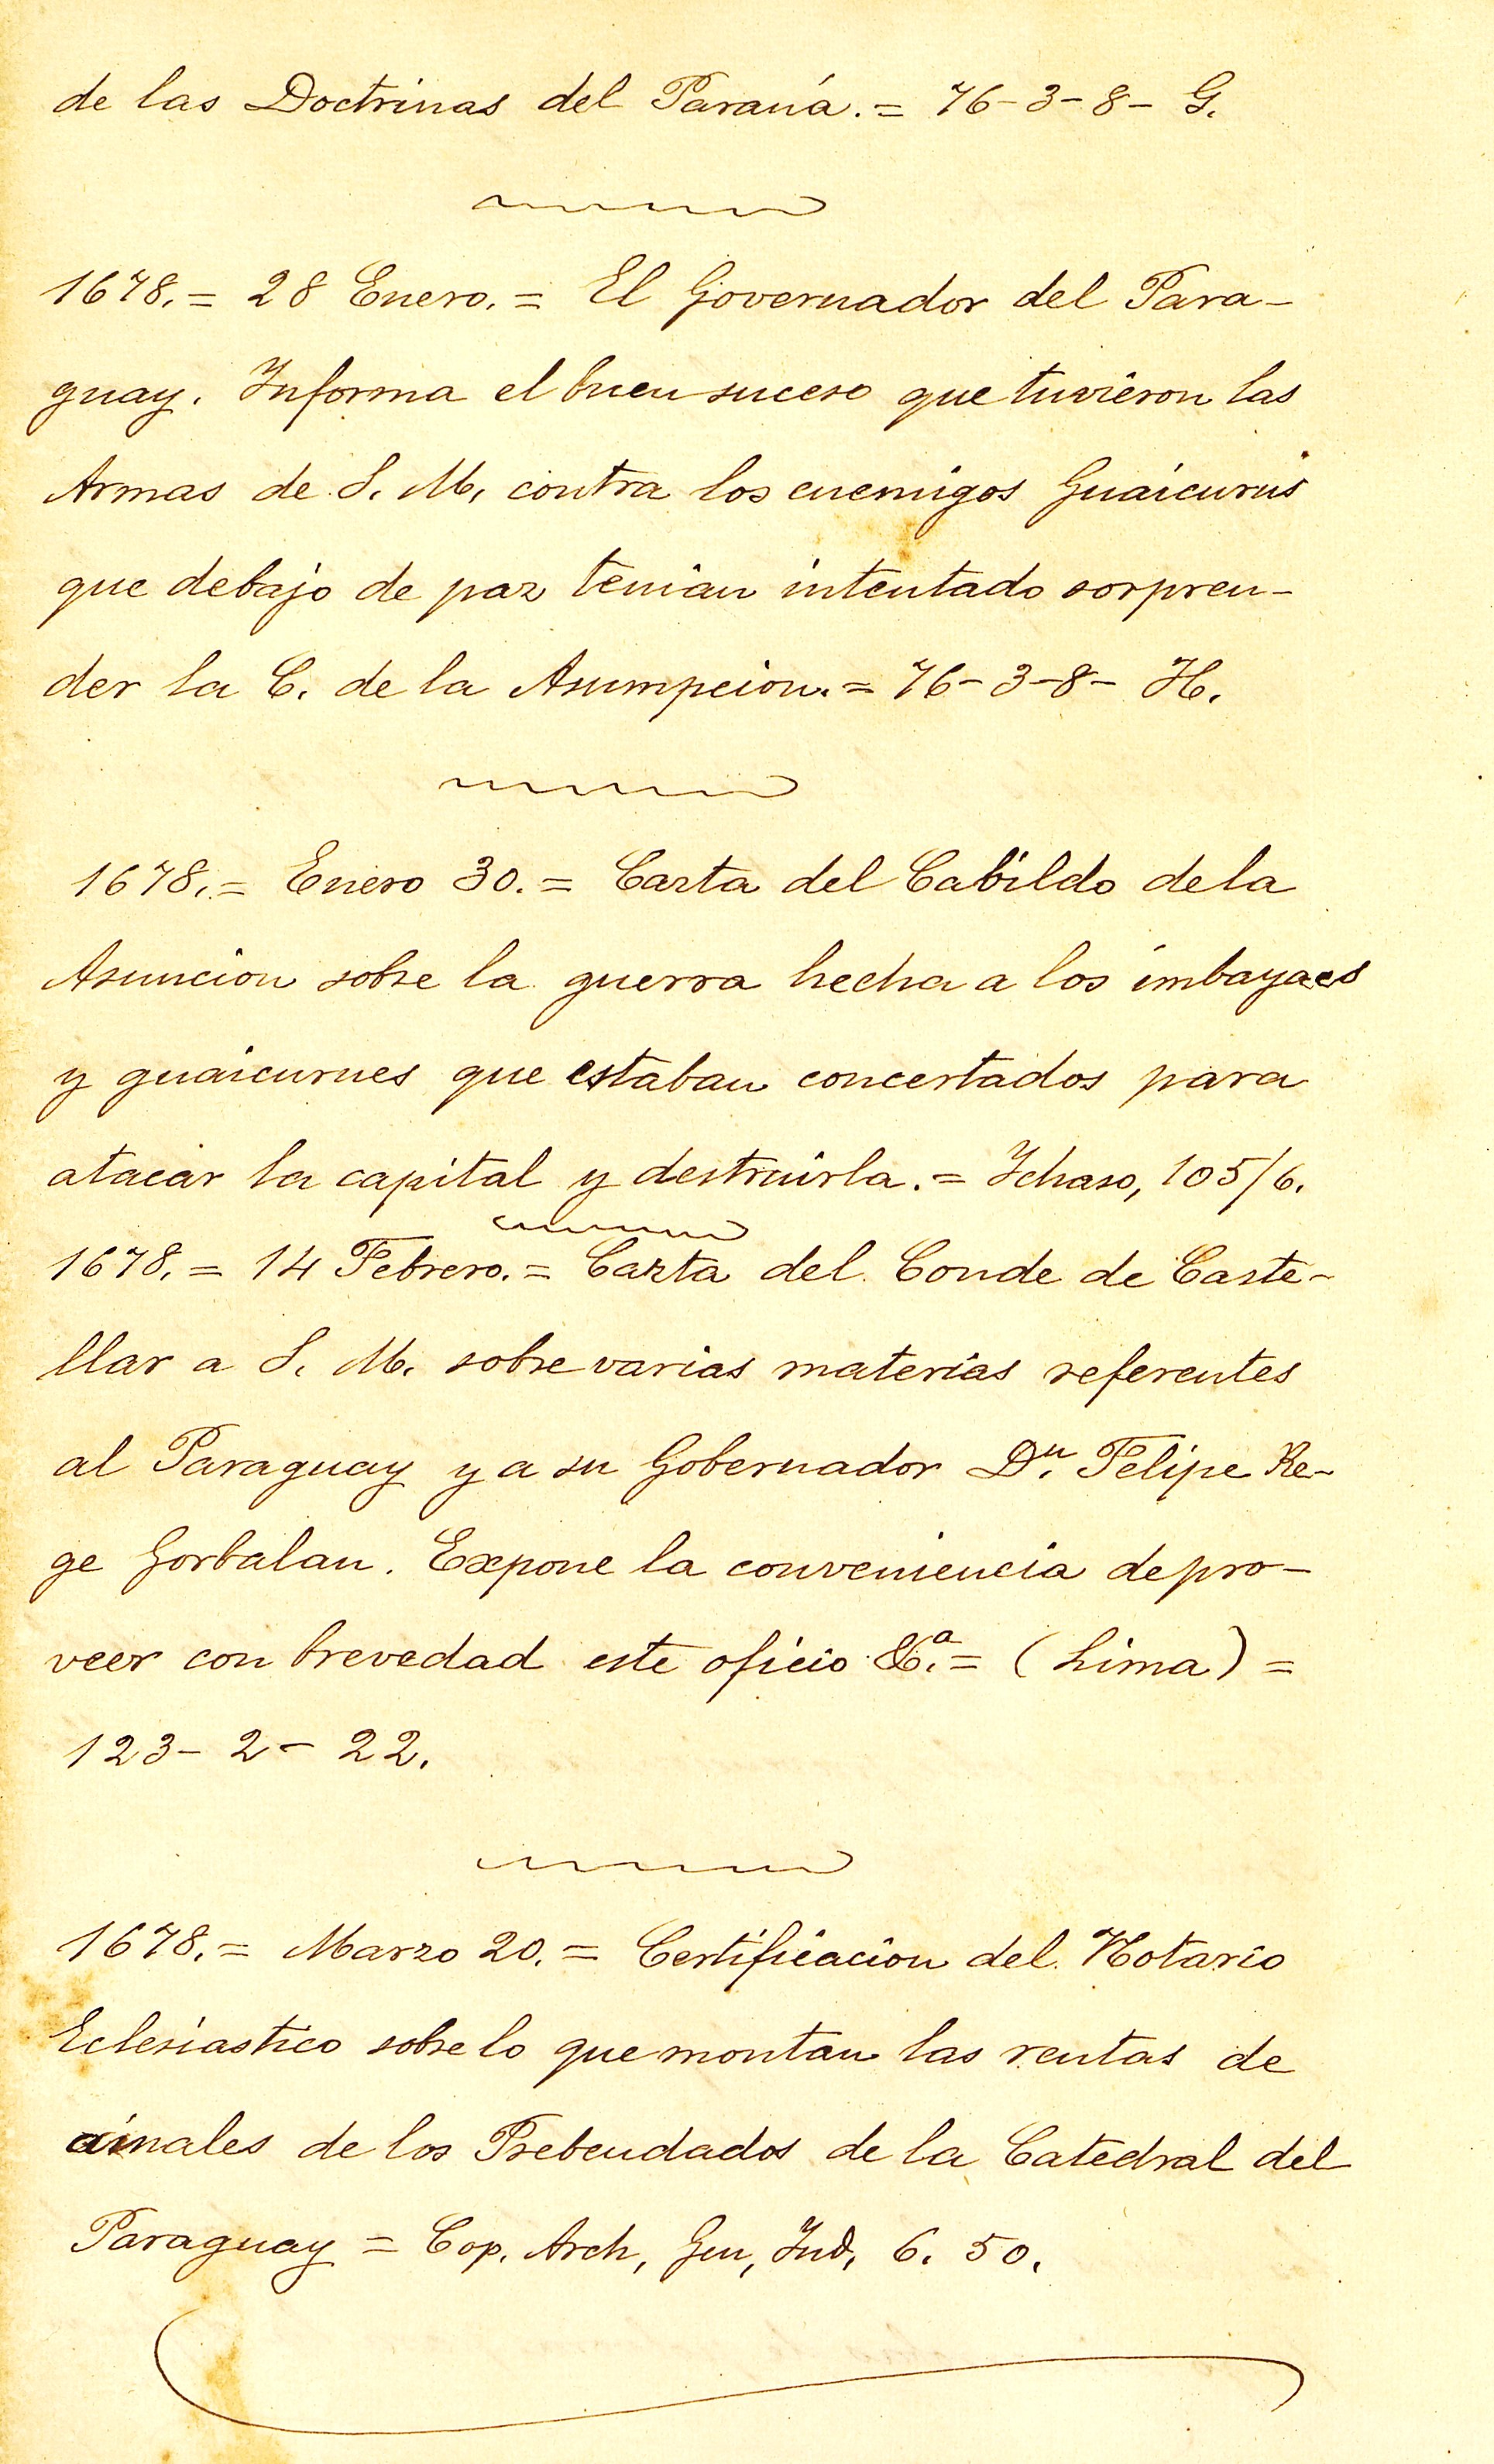 de las Doctrinas del Paraná. = 76-3-8- G.
1678. = 28 Enero. = El Governador del Para-
guay. Informa el buen suceso que tuvieron las
Armas de S. M. contra los enemigos Guaicurus
que debajo de paz tenian intentado sorpren-
der la C. de la Asumpcion. = 76-3-8- H.
1678. = Enero 30. = Carta del Cabildo de la
Asuncion sobre la guerra hecha a los imbayaes
y guaicurues que estaban concertados para
atacar la capital y destruirla. = Ichaso, 105/6.
1678. = 14 Febrero. = Carta del Conde de Caste-
llar a S. M. sobre varias materias referentes
al Paraguay y a su Gobernador Dn. Felipe Re-
ge Gorbalan. Expone la conveniencia de pro-
veer con brevedad este oficio &a. = (Lima) =
123- 2- 22.
1678. = Marzo 20. = Certificacion del Notario
Eclesiastico sobre lo que montan las rentas de
cimales de los Prebendados de la Catedral del
Paraguay = Cop. Arch, Gen, Ind, 6. 50.